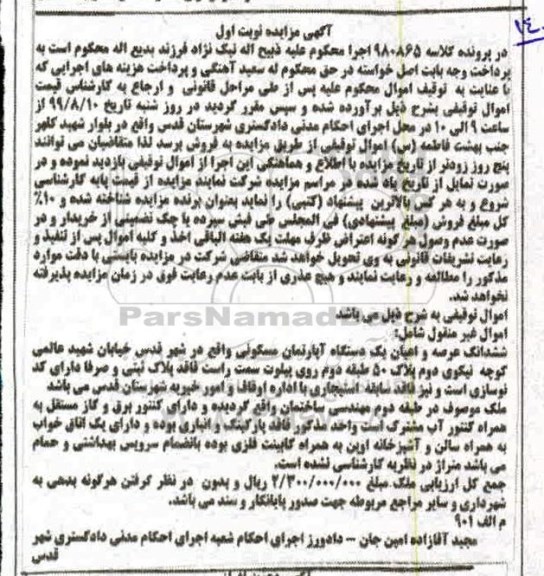 آگهی مزایده نوبت اول
در پرونده کلاسه ۹۸۰۸۶۵ اجرا محکوم علیه ذبیح اله نیک نژاد فرزند بدیع اله محکوم است به
پرداخت وجه بابت اصل خواسته در حق محکوم له سعید آهنگی و پرداخت هزینه های اجرایی که
با عنایت به توقیف اموال محکوم علیه پس از طی مراحل قانونی و ارجاع به کارشناس قیمت
اموال توقیفی بشرح ذیل برآورده شده و سپس مقرر گردید در روز شنبه تاریخ ۹۹/۸/۱۰ از
ساعت ۹ الی ۱۰ در محل اجرای احکام مدنی دادگستری شهرستان قدس واقع در بلوار شهید کلهر
جنب بهشت فاطمه (س) اموال توقیفی از طریق مزایده به فروش برسد لذا متقاضیان می توانند
پنج روز زودتر از تاریخ مزایده با اطلاع و هماهنگی این اجرا از اموال توقیفی بازدید نموده و در
صورت تمایل از تاریخ یاد شده در مراسم مزایده شرکت نمایند مزایده از قیمت پایه کارشناسی
شروع و به هر کس بالاترین پیشنهاد (کتبی) را نماید بعنوان برنده مزایده شناخته شده و ۱۰%
کل مبلغ فروش (مبلغ پیشنهادی) فی المجلس طی فیش سپرده یا چک تضمینی از خریدار و در
صورت عدم وصول هر گونه اعتراض ظرف مهلت یک هفته الباقی اخذ و کلیه اموال پس از تنفیذ و
رعایت تشریفات قانونی به وی تحویل خواهد شد متقاضی شرکت در مزایده بایستی با دقت موارد
مذکور را مطالعه و رعایت نمایند و هیچ عذری از بابت عدم رعایت فوق در زمان مزایده پذیرفته
نخواهد شد.
اموال توقیفی به شرح ذیل می باشد
ParsNamadData
اموال غیر منقول شامل:
ششدانگ عرصه و اعیان یک دستگاه آپارتمان مسکونی واقع در شهر قدس خیابان شهید عالمی
کوچه نیکوی دوم پلاک ۵۰ طبقه دوم روی پیلوت سمت راست فاقد پلاک ثبتی و صرفا دارای کد
نوسازی است و نیز فاقد سابقه استیجاری با اداره اوقاف و امور خیریه شهرستان قدس می باشد
ملک موصوف در طبقه دوم مهندسی ساختمان واقع گردیده و دارای کنتور برق و گاز مستقل به
همراه کنتور آب مشترک است واحد مذکور فاقد پارکینگ و انباری بوده و دارای یک اتاق خواب
به همراه سالن و آشپزخانه اوپن به همراه کابینت فلزی بوده بانضمام سرویس بهداشتی و حمام
می باشد متراژ در نظریه کارشناسی نشده است.
جمع کل ارزیابی ملک مبلغ ۲/۳۰۰/۰۰۰/۰۰۰ ریال و بدون در نظر گرفتن هرگونه بدهی به
شهرداری و سایر مراجع مربوطه جهت صدور پایانکار و سند می باشد.
م الف ۹۰۱
مجید آقازاده امین جان – دادورز اجرای احکام شعبه اجرای احکام مدنی دادگستری شهر
قدس